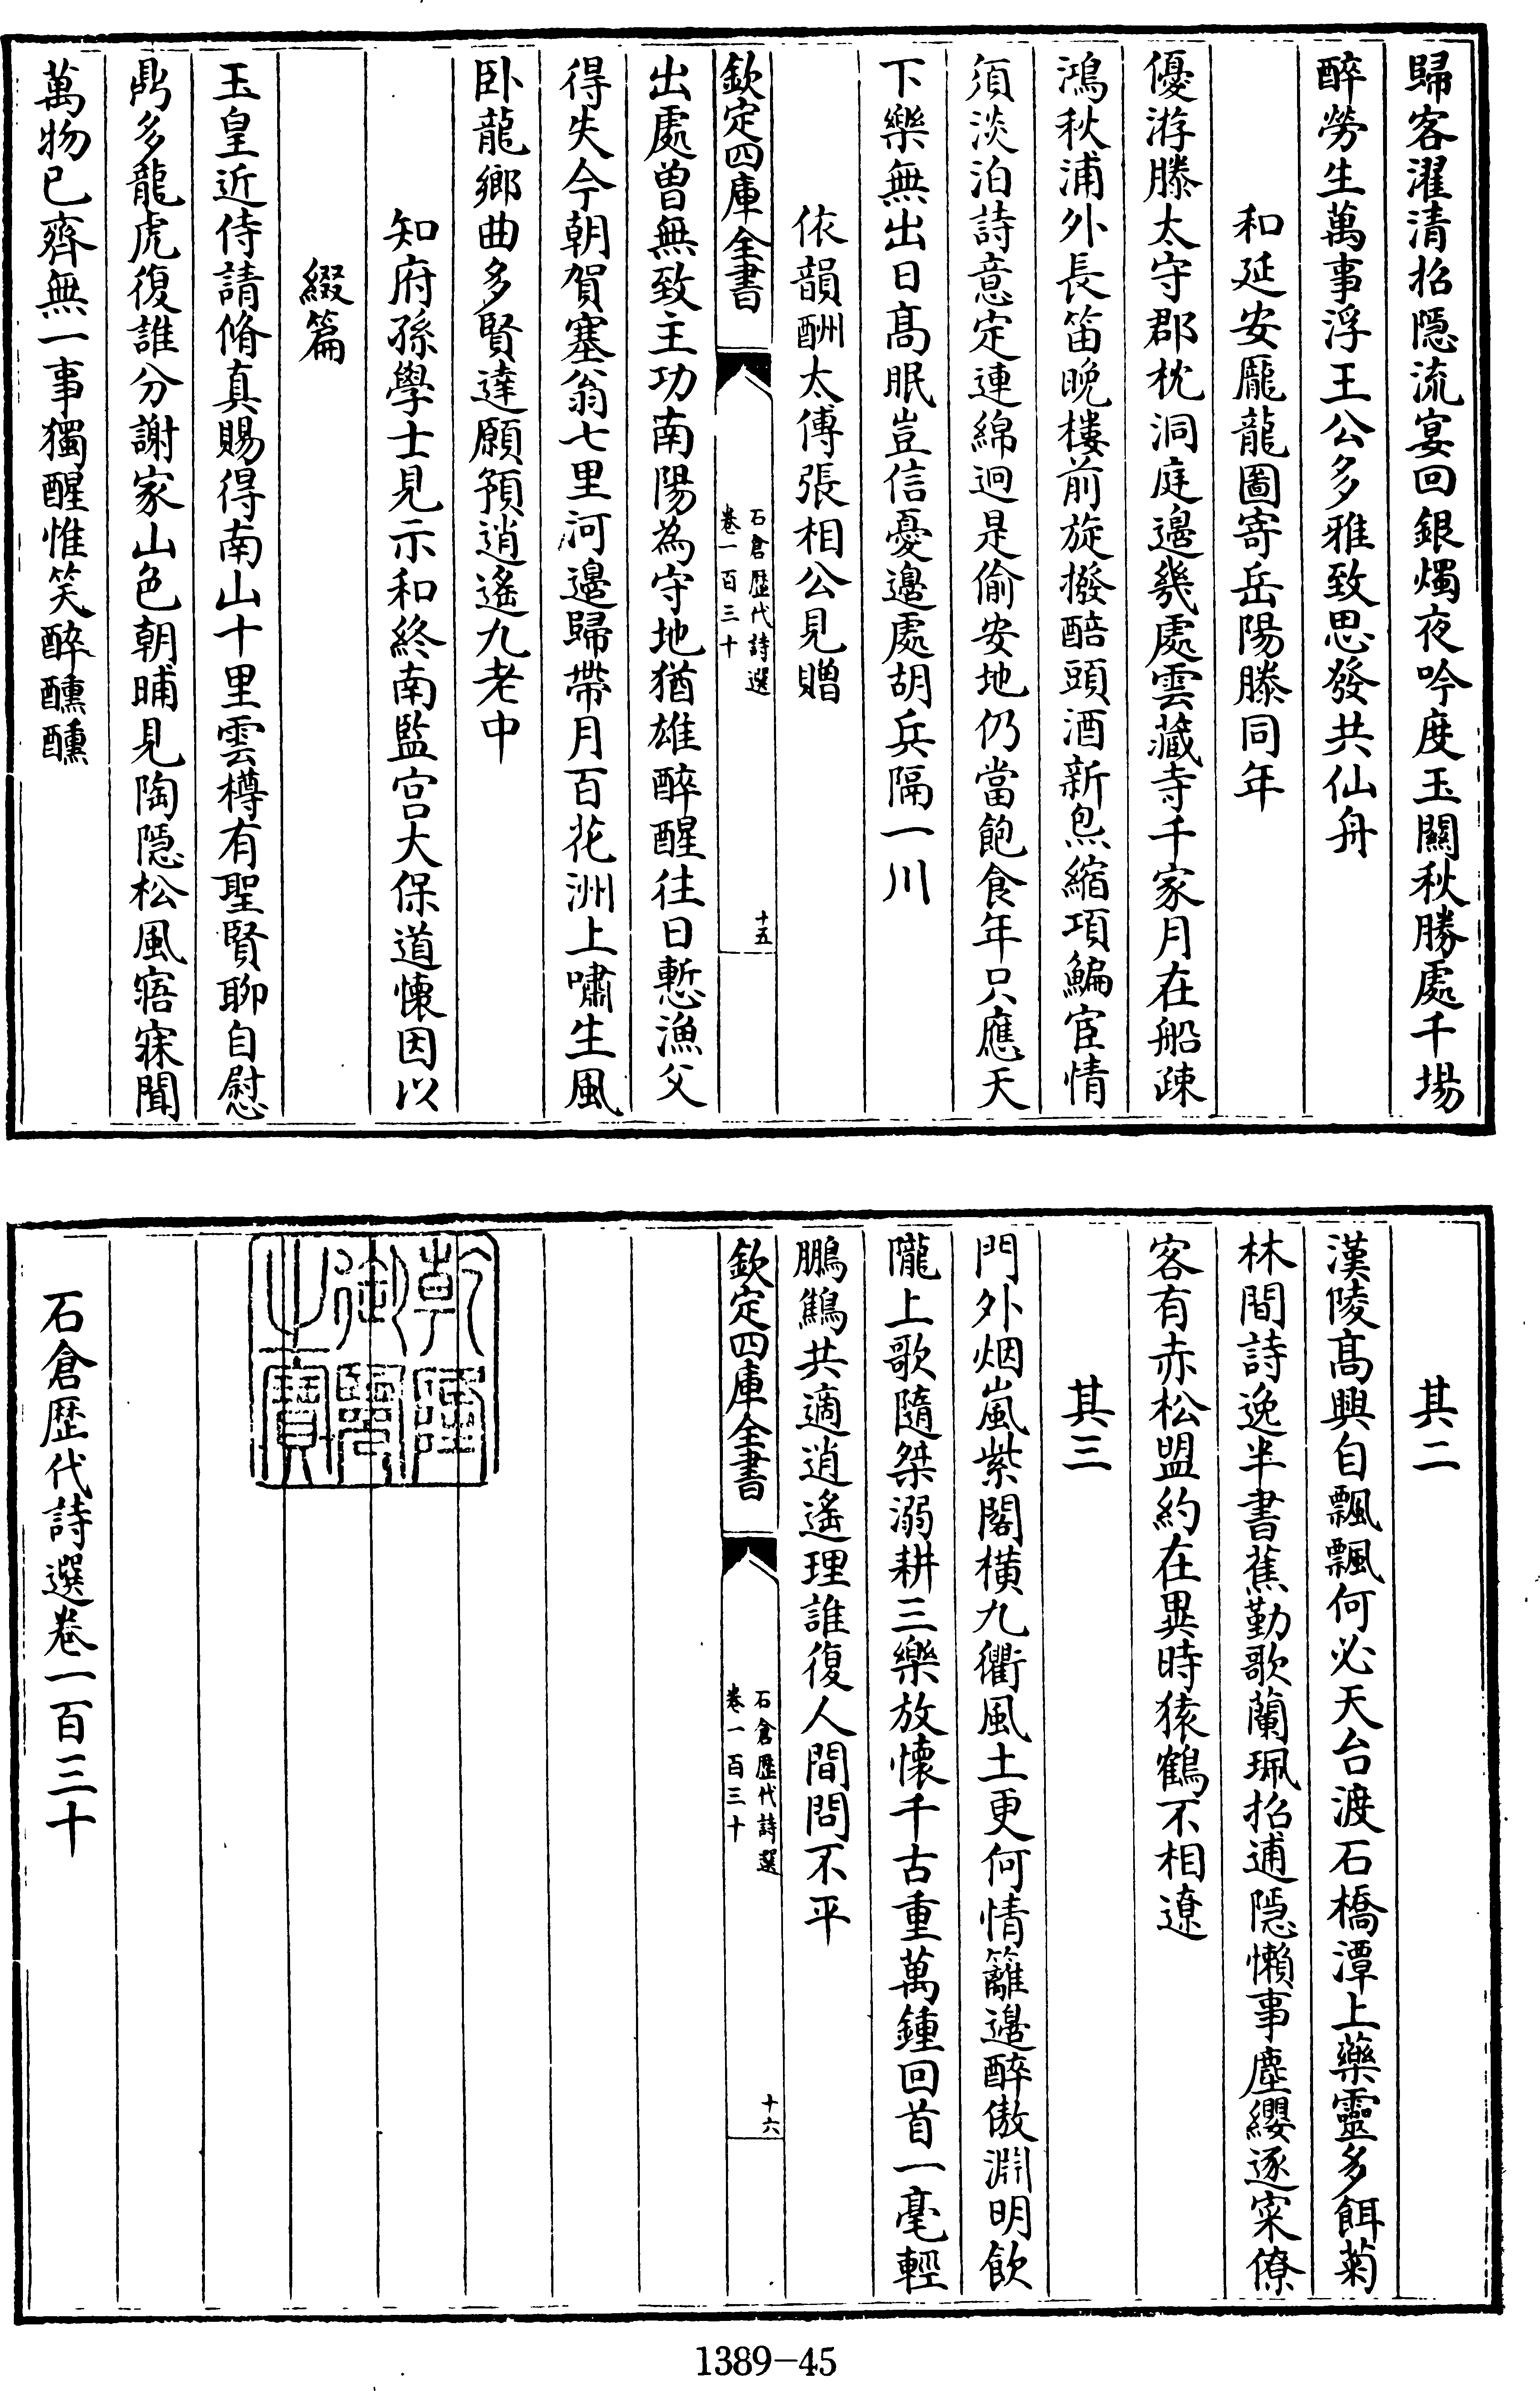 歸客濯清招隱流宴回銀燭夜吟度玉關秋勝處千場
醉勞生萬事浮王公多雅致思發共仙舟
和延安龎龍圖寄岳陽滕同年
優游滕太守郡枕洞庭邊幾處雲藏寺千家月在船疎
鴻秋浦外長笛晚樓前旋撥醅頭酒新炰縮項鯿宦情
須淡泊詩意定連綿迥是偷安地仍當飽食年只應天
下樂無出日髙眠豈信憂邊處胡兵隔一川
依韻酬太傅張相公見贈
欽定四庫全書
石倉歴代詩選
卷一百三十
十五
出處曽無致主功南陽為守地猶雄醉醒往日慙漁父
得失今朝賀塞翁七里河邊歸帶月百花洲上嘯生風
卧龍鄉曲多賢達願預逍遙九老中
知府孫學士見示和終南監宫大保道懷因以
綴篇
玉皇近侍請脩真賜得南山十里雲樽有聖賢聊自慰
鼎多龍虎復誰分謝家山色朝晡見陶隱松風寤寐聞
萬物已齊無一事獨醒惟笑醉醺醺
其二
漢陵髙興自飄飄何必天台渡石橋潭上藥靈多餌菊
林間詩逸半書蕉勤歌蘭珮招逋隱懶事塵纓逐寀僚
客有赤松盟約在異時猿鶴不相遼
其三
門外烟嵐紫閣橫九衢風土更何情籬邊醉傲淵明飲
隴上歌隨桀溺耕三樂放懷千古重萬鍾回首一毫輕
鵬鷦共適逍遙理誰復人間問不平
欽定四庫全書
石倉歴代詩選
卷一百三十
十六
乾隆御覽之寶
石倉歴代詩選卷一百三十
1389-45